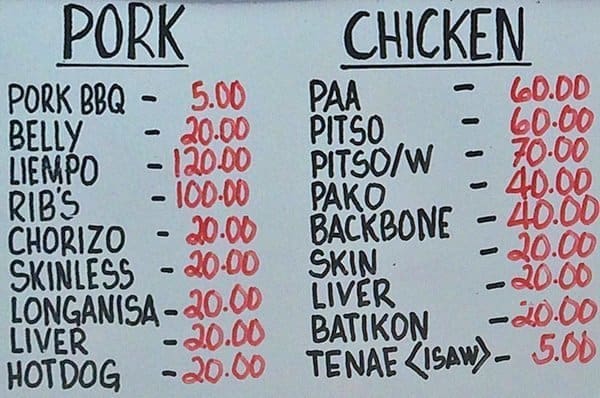 PORK
PORK BBQ - 5.00
BELLY - 20.00
LIEMPO - 120.00
RIB'S - 100.00
CHORIZO - 20.00
SKINLESS - 20.00
LONGANISA - 20.00
LIVER - 20.00
HOTDOG - 20.00
CHICKEN
PAA - 60.00
PITSO - 60.00
PITSO/W - 70.00
PAKO - 40.00
BACKBONE - 40.00
SKIN - 20.00
LIVER - 20.00
BATIKON - 20.00
TENAE <ISAW> - 5.00